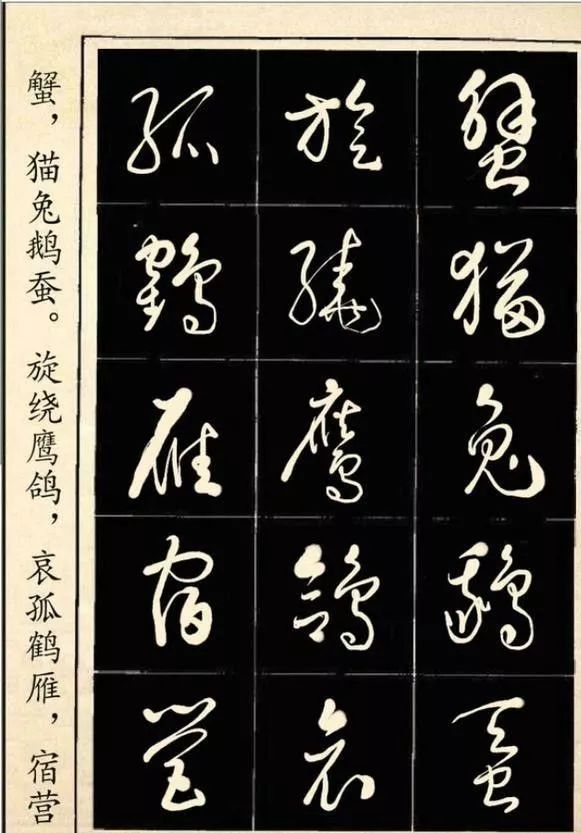 蟹猫兔鹅蚕
旋绕鹰鸽哀
孤鹤雁宿营
蟹，猫兔鹅蚕。旋绕鹰鸽，哀孤鹤雁，宿营